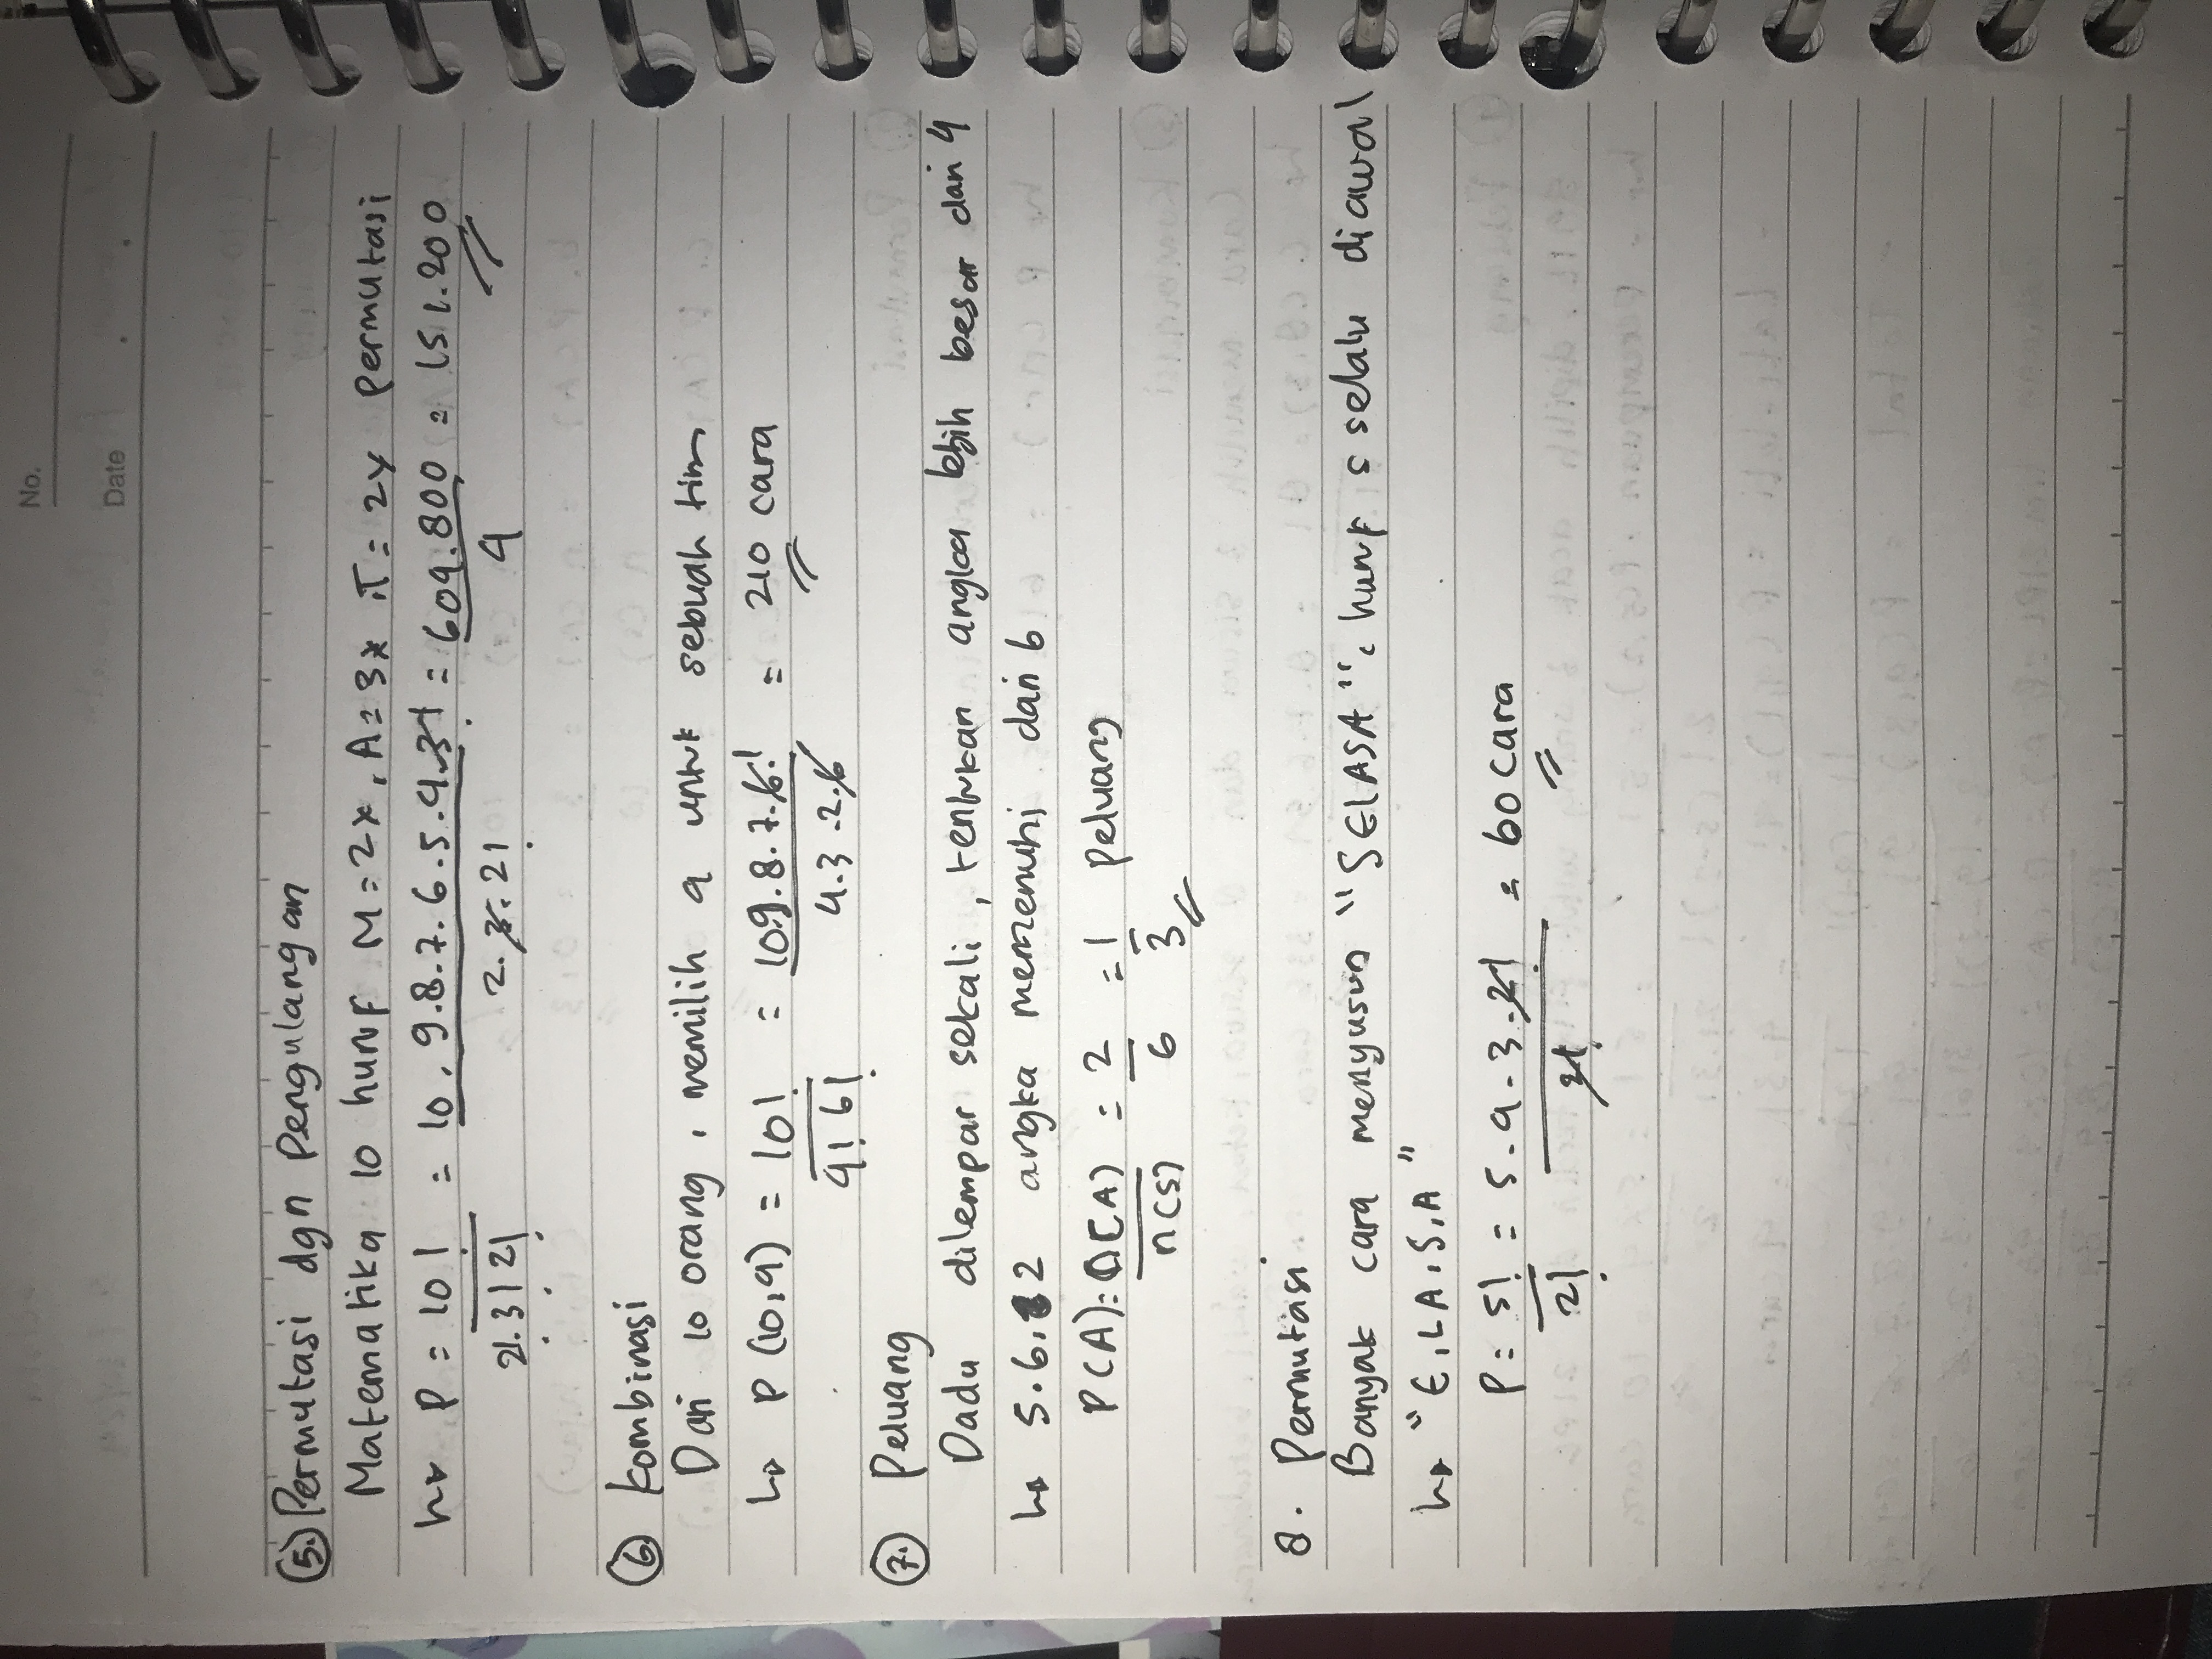 No.
Date
5. Permutasi dgn Pengulangan
Matematika 10 huruf M=2x, A=3x, T=2x permutasi
↳ P = 10! / 2!.3!2! = 10.9.8.7.6.5.4.3! / 2.3!.2! = 604.800 / 4 = 151.200
6 Kombinasi
Dari 10 orang, memilih 4 untuk sebuah tim
↳ P(10,4) = 10! / 4!6! = 10.9.8.7.6! / 4.3.2.6 = 210 cara
7. Peluang
Dadu dilempar sekali, tentukan angka lebih besar dari 4
↳ 5.6, 2 angka memenuhi dari 6
P(A): n(A) / n(s) = 2 / 6 = 1 / 3 peluang
8. Permutasi
Banyak cara menyusun "SELASA", huruf s selalu diawal
↳ "E,L,A,S,A"
P = 5! / 2! = 5.4.3.2! / 2! = 60 cara